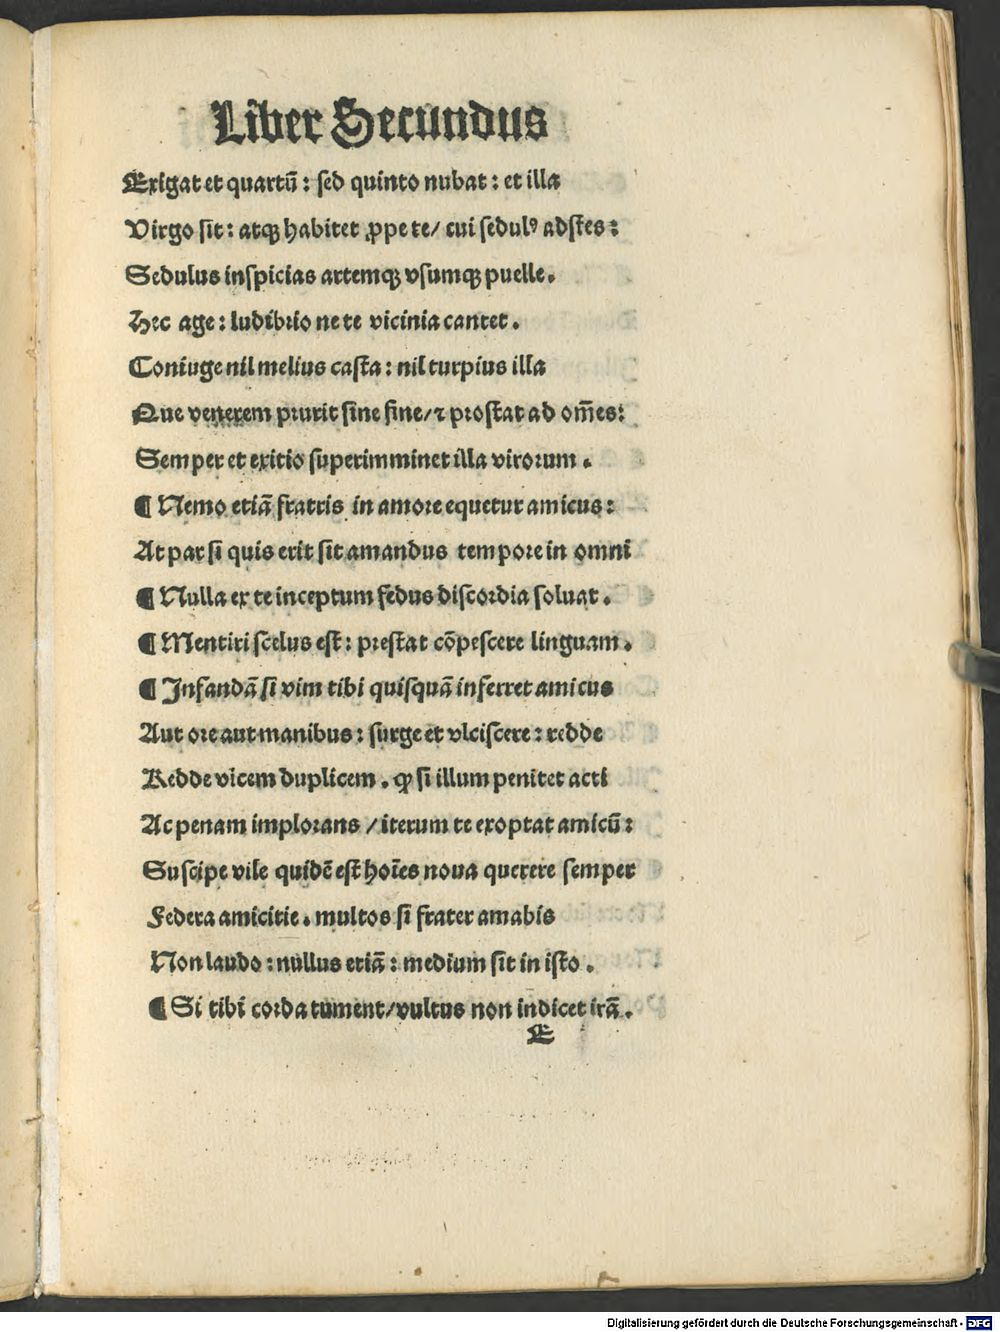 Liber Secundus
Exigat et quartū : sed quinto nubat : et illa
Virgo sit : atqꝫ habitet ꝓpe te / cui sedulꝰ adstes :
Sedulus inspicias artemqꝫ vsumqꝫ puelle .
Hec age : ludibrio ne te vicinia cantet .
Coniuge nil melius casta : nil turpius illa
Que venerem prurit sine fine / ⁊ prostat ad om̄es :
Semper et exitio superimminet illa virorum .
¶ Nemo etiā fratris in amore equetur amicus :
At par si quis erit sit amandus tempore in omni
¶ Nulla ex te inceptum fedus discordia soluat .
¶ Mentiri scelus est : prestat cōpescere linguam .
¶ Infandā si vim tibi quisquā inferret amicus
Aut ore aut manibus : surge et vlciscere : redde
Redde vicem duplicem . ꝙ si illum penitet acti
Ac penam implorans / iterum te exoptat amicū :
Suscipe vile quidē est hoīes noua querere semper
Federa amicitie . multos si frater amabis
Non laudo : nullus etiā : medium sit in isto .
¶ Si tibi corda tument / vultus non indicet irā .
E
Digitalisierung gefördert durch die Deutsche Forschungsgemeinschaft - DFG